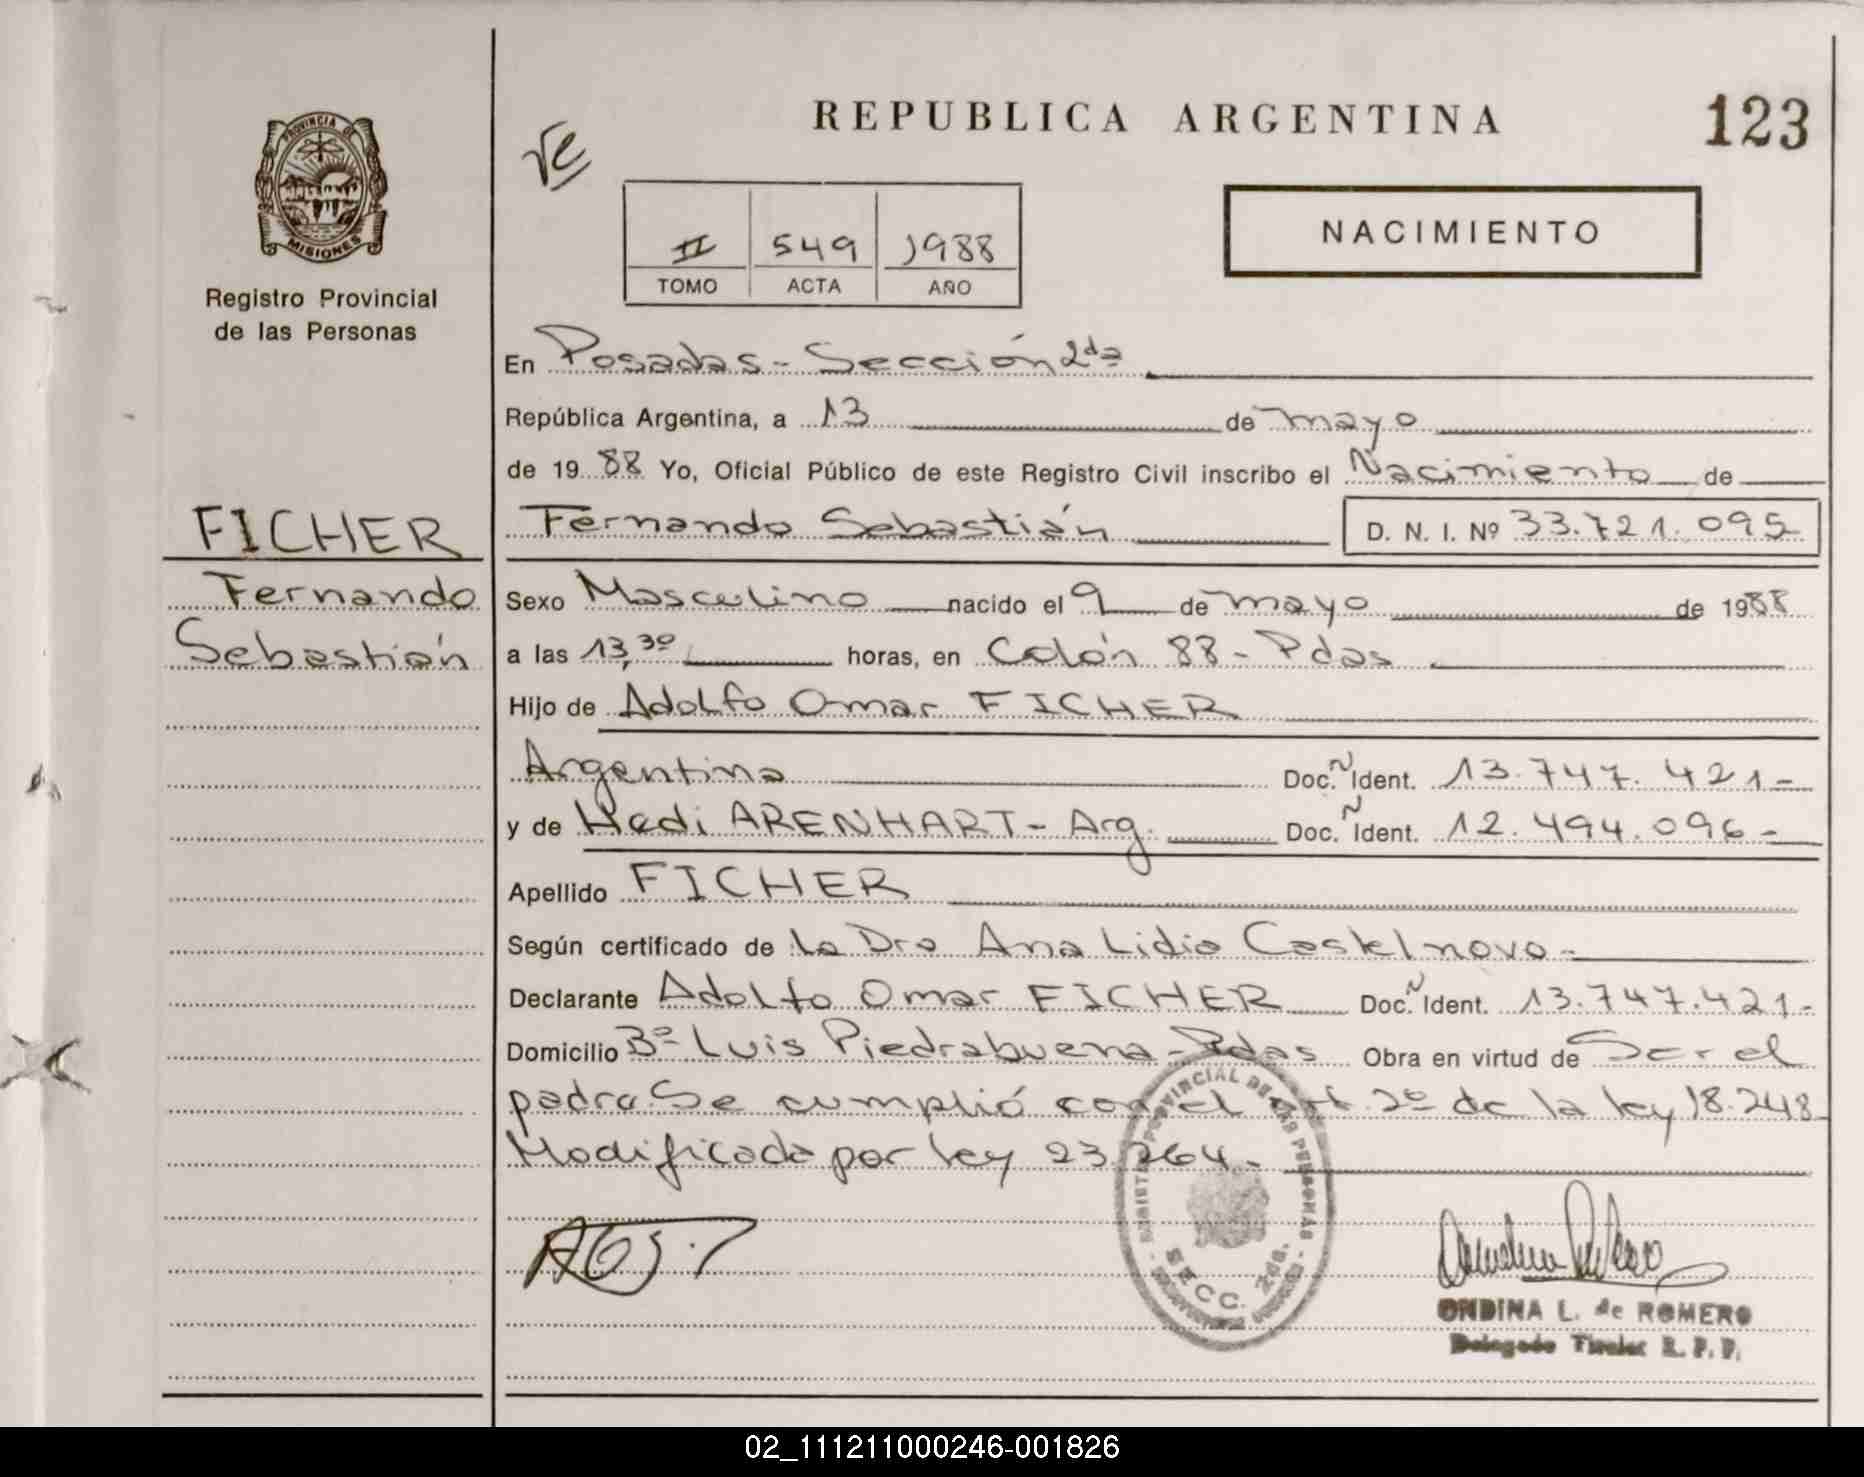 PROVINCIA DE
MISIONES
Registro Provincial
de las Personas
FICHER
Fernando
Sebastián
REPUBLICA ARGENTINA
123
II 549 1988
TOMO ACTA AÑO
NACIMIENTO
En Posadas - Sección 2da
República Argentina, a 13 de mayo
de 1988 Yo, Oficial Público de este Registro Civil inscribo el Nacimiento de
Fernando Sebastián D. N. I. Nº 33.721.095
Sexo Masculino nacido el 9 de mayo de 1988
a las 13,30 horas, en Colón 88 - Pdas
Hijo de Adolfo Omar FICHER
Argentino Doc. N Ident. 13.747.421-
y de Hedi ARENHART - Arg. Doc. N Ident. 12.494.096-
Apellido FICHER
Según certificado de la Dra Ana Lidia Castelnovo-
Declarante Adolfo Omar FICHER Doc. N Ident. 13.747.421-
Domicilio Bº Luis Piedrabuena - Pdas Obra en virtud de Ser el
padre. Se cumplió con el Art. 2º de la ley 18.248
Modificada por ley 23.264.-
PROVINCIAL DE LAS PERSONAS
SECC. 2da.
ONDINA L. de ROMERO
Delegado Titular R. P. P.
02_111211000246-001826